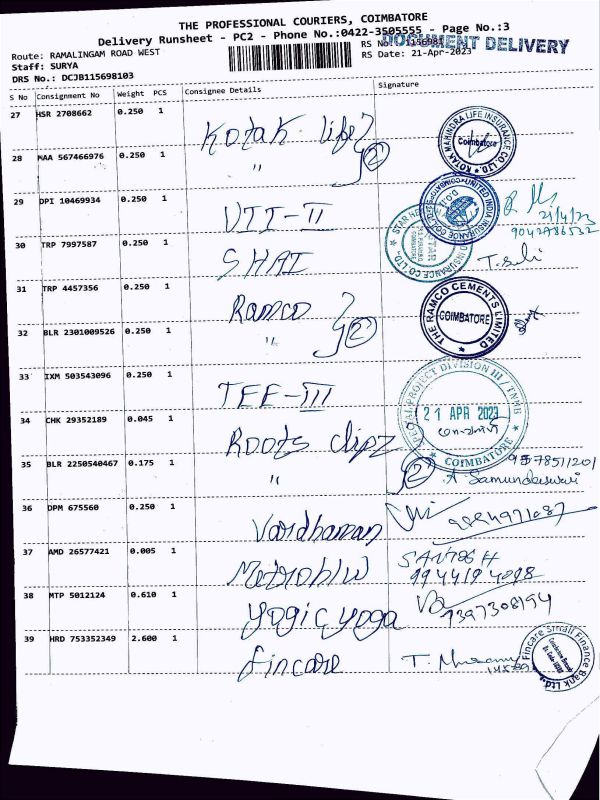 THE PROFESSIONAL COURIERS, COIMBATORE
Delivery Runsheet - PC2 - Phone No.:0422-3505555 - Page No.:3
Route: RAMALINGAM ROAD WEST
RS No.: 115698
DOCUMENT DELIVERY
Staff: SURYA
RS Date: 21-Apr-2023
DRS No.: DCJB115698103
S No Consignment No Weight PCS Consignee Details Signature
27 HSR 2708662 0.250 1 Kotak life
KOTAK MAHINDRA LIFE INSURANCE CO LTD. Coimbatore
28 MAA 567466976 0.250 1 " 2
29 DPI 10469934 0.250 1 UII-II
UNITED INDIA INSURANCE CO LTD
21/4/23
9042786532
30 TRP 7997587 0.250 1 SHAI
INSURANCE CO LTD.
31 TRP 4457356 0.250 1 Ramco
THE RAMCO CEMENTS LIMITED COIMBATORE
32 BLR 2301009526 0.250 1 " 2
33 IXM 503543096 0.250 1 TEE-III
PROJECT DIVISION III / TNHB
21 APR 2023
COIMBATORE
34 CHK 29352189 0.045 1 Roots clipz
35 BLR 2250540467 0.175 1 " 2
A Samundeswari
36 DPM 675560 0.250 1 Vardhaman
37 AMD 26577421 0.005 1
SANTOSH
9944194098
38 MTP 5012124 0.610 1 Yogic yoga
7397308194
39 HRD 753352349 2.600 1 fincare
Fincare Small Finance Bank Ltd.